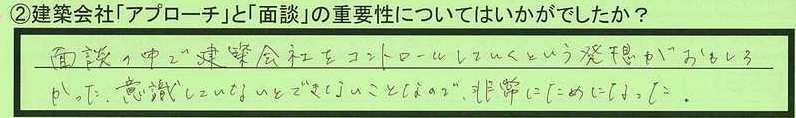 ②建築会社「アプローチ」と「面談」の重要性についてはいかがでしたか？
面談の中で建築会社をコントロールしていくという発想がおもしろ
かった。意識していないとできないことなので、非常にためになった。